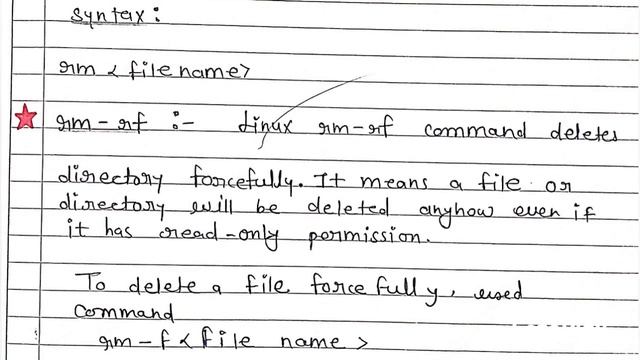 Syntax:
rm < file name>
rm-rf :- Linux rm-rf command deletes
directory forcefully. It means a file or
directory will be deleted anyhow even if
it has read-only permission.
To delete a file forcefully, used
command
rm-f < file name >